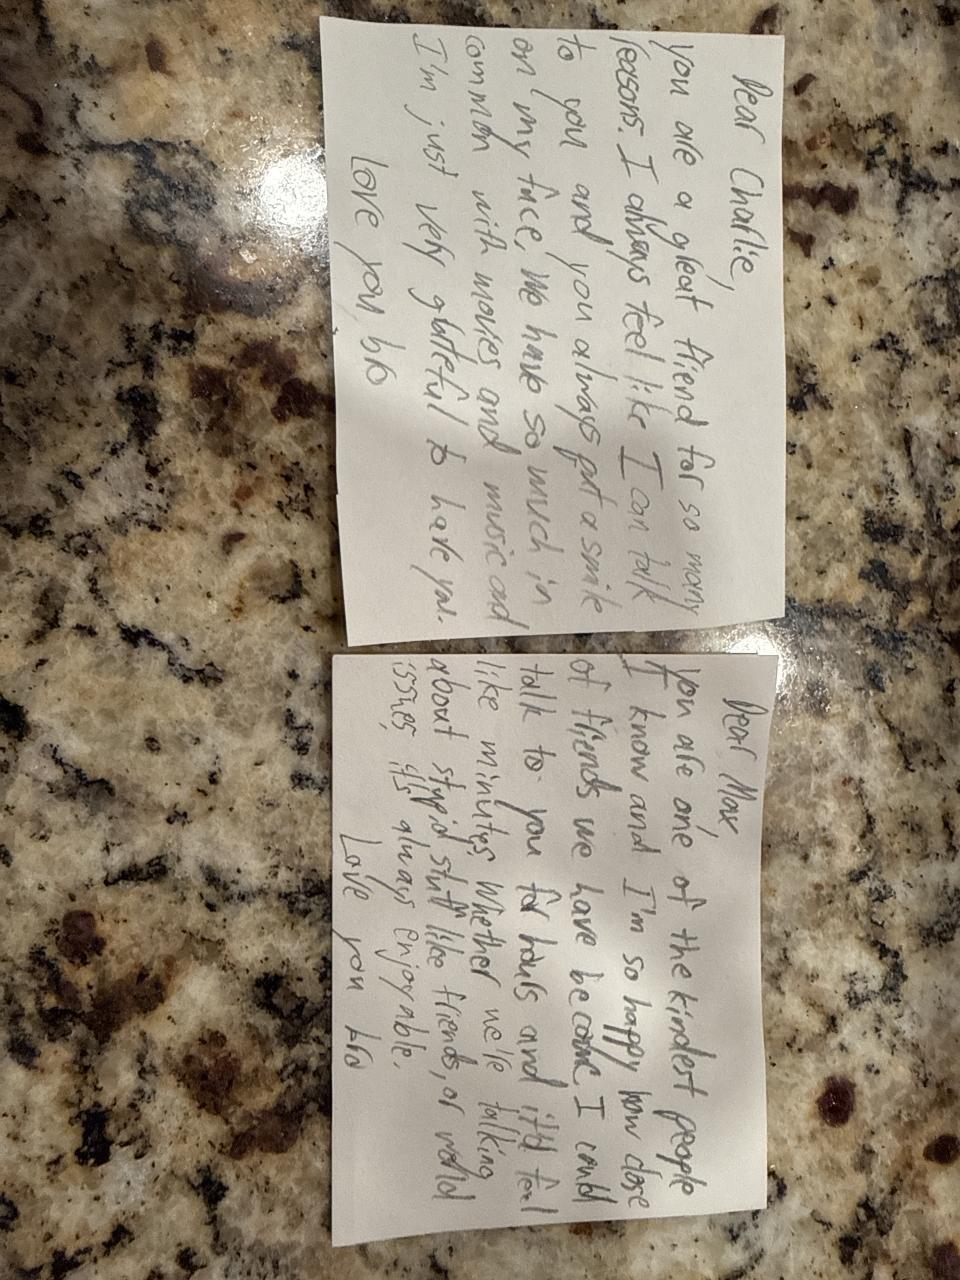 Dear Charlie,
You are a great friend for so many
reasons. I always feel like I can talk
to you and you always put a smile
on my face. We have so much in
common with movies and music and
I'm just very grateful to have you.
Love you, bro
Dear Max,
You are one of the kindest people
I know and I'm so happy how close
of friends we have become I could
talk to you for hours and it'd feel
like minutes. Whether we're talking
about stupid stuff like friends, or world
issues, it's always enjoyable.
Love you bro